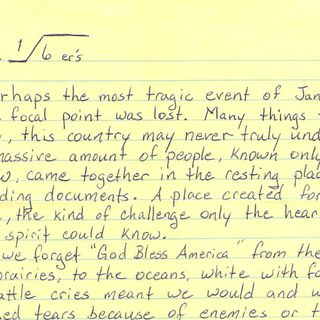 1/6 er's
rhaps the most tragic event of Jan
focal point was lost. Many things
, this country may never truly und
massive amount of people, known only
w, came together in the resting plac
ding documents. A place created for
, the kind of challenge only the hear
spirit could know.
we forget "God Bless America" from the
prairies, to the oceans, white with fo
attle cries meant we would and w
ed tears because of enemies or t